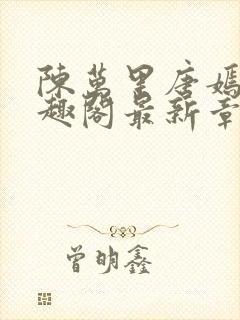 陳萬里唐嫣
趣閣最新章
曾明鑫